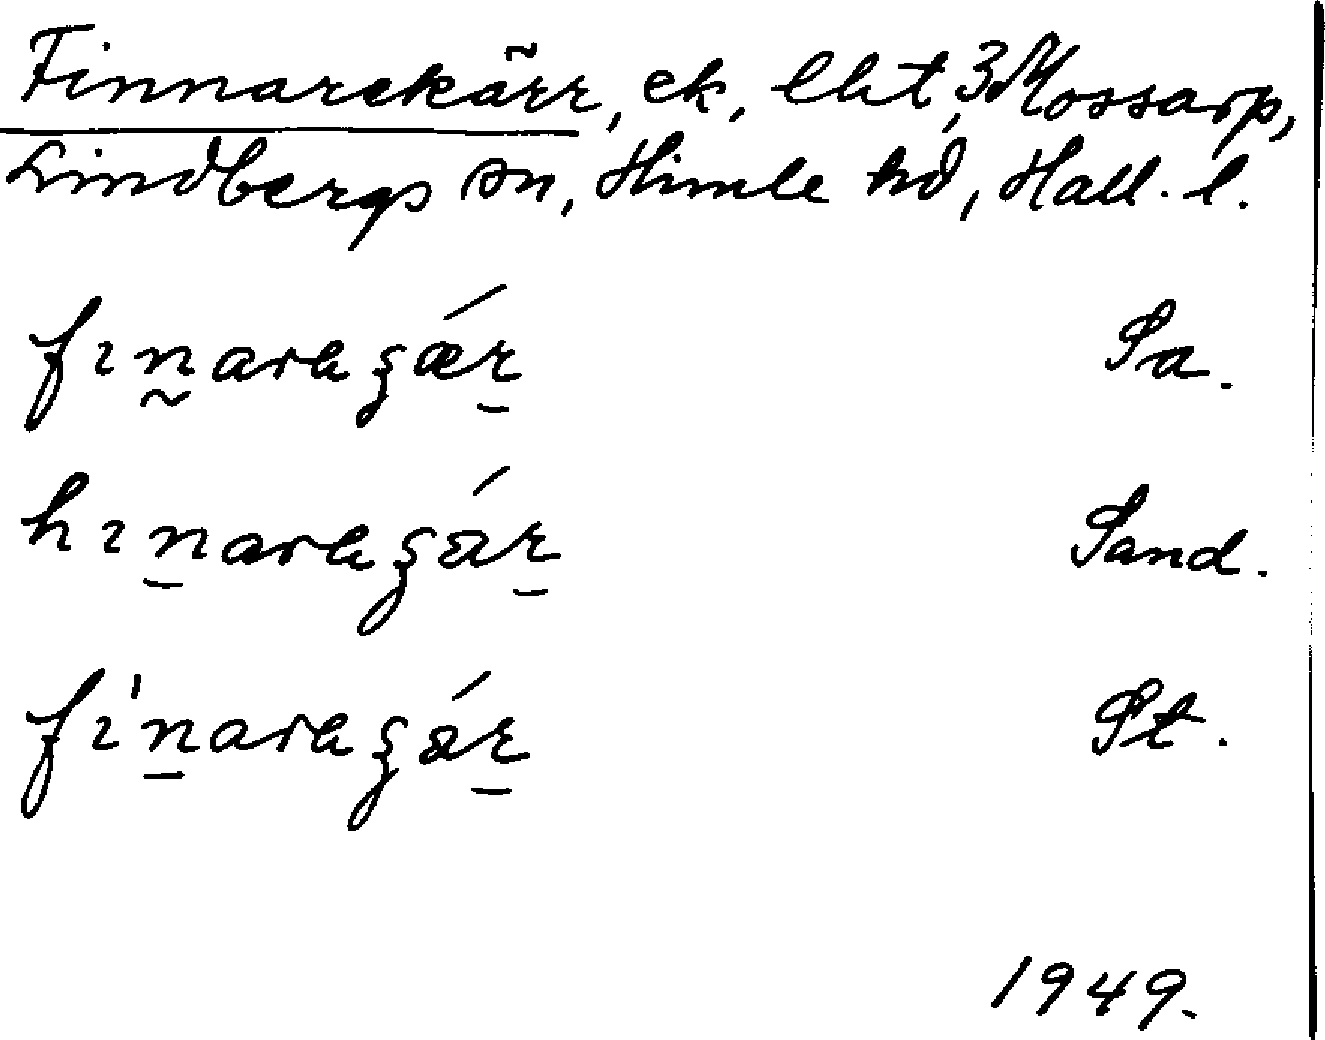 Finnarekärr, ek, lht, 3 Mossarp,
Lindbergs sn, Himle hd, Hall. l.
fınaraʒǽr Sa.
hınaraʒár Sand.
fı'naraʒár St.
1949.